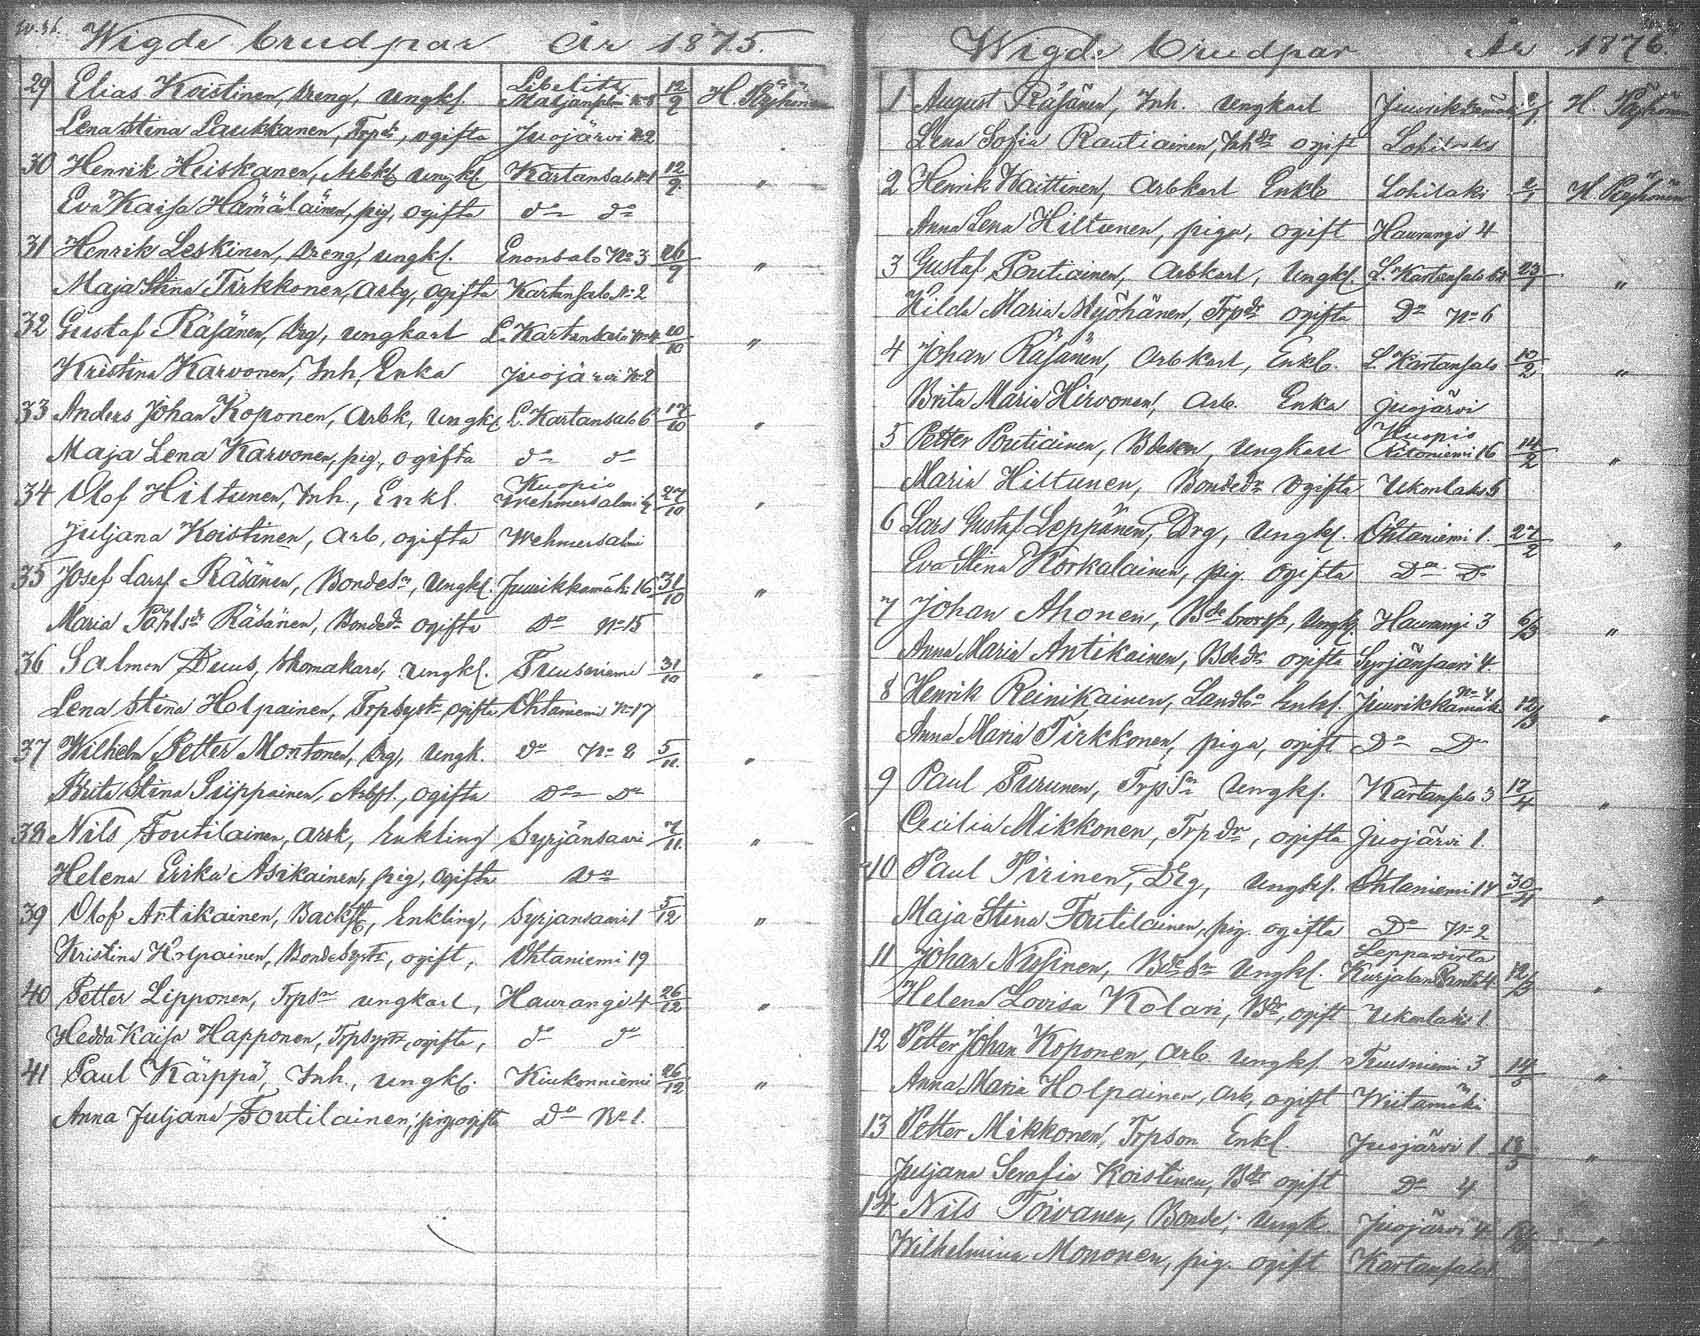 Wigde Brudpar År 1875.
29 Elias Koistinen, Dreng, Ungkl. Libelitz Maljanselmi No 8 12/9 H. Pöyhönen
Lena Stina Laukkanen, Trpdr, ogifta Juojärvi No 2
30 Henrik Heiskanen, Arbk, Ungkl. Kartansalo No 1 12/9 "
Eva Kaisa Hämäläinen, pig, ogifta do do
31 Henrik Leskinen, Dreng, ungkl. Enonsalo No 3 26/9 "
Maja Stina Tirkkonen, Arb, ogifta Kartansalo No 2
32 Gustaf Räsänen, Drg, ungkarl L. Kartansalo No 4 10/10 "
Kristina Karvonen, Inh, Enka Juojärvi No 2
33 Anders Johan Koponen, Arbk, Ungkl L. Kartansalo 6 17/10 "
Maja Lena Karvonen, pig, ogifta do do
34 Olof Hiltunen, Inh., Enkl. Kuopio Wehmersalmi 4 27/10 "
Juljana Koistinen, Arb, ogifta Wehmersalmi
35 Josef Larsf Räsänen, Bondesn, Ungkl. Juurikkamäki 16 31/10 "
Maria Påhlsdr Räsänen, Bondedr ogifta Do No 15
36 Salmon Duus, Skomakare, ungkl. Tuusniemi 31/10 "
Lena Stina Holpainen, Trpsystr, ogifta Ohtaniemi No 17
37 Wilhelm Petter Montonen, Drg, Ungk. do No 2 5/11. "
Brita Stina Siippainen, Arbf., ogifta Do Do
38 Nils Toutilainen, arbk, Enkling Syrjänsaari 7/11. "
Helena Erika Asikainen, pig, ogifta Do
39 Olof Antikainen, Backst, Enkling, Syrjänsaari 1 5/12 "
Kristina Holpainen, Bondesystr, ogift, Ohtaniemi 19
40 Petter Lipponen, Trpsn ungkarl, Haurangi 4 26/12 "
Hedda Kaisa Happonen, Trpsystr, ogifta, do do
41 Paul Kärppä, Inh., ungkl. Kiukonniemi 26/12 "
Anna Juljana Toutilainen, pig ogifta Do No 1.
Wigde Brudpar År 1876.
1 August Räsänen, Inh. Ungkarl Juurikkamäki 2/1 H. Pöyhönen
Lena Sofia Rautiainen, Inhdr ogift Lohilaks
2 Henrik Kaittinen, Arbkarl Enkl Lohilaks 2/1 H. Pöyhönen
Anna Lena Hiltunen, piga, ogift Haurangi 4
3 Gustaf Poutiainen, Arbkarl, Ungkl. L. Kartansalo 23/1 "
Hilda Maria Myöhänen, Trpdr ogifta Do No 6
4 Johan Räsänen, Arbkarl, Enkl. L. Kartansalo 10/2 "
Brita Maria Hirvonen, Arb Enka Juojärvi
5 Petter Poutiainen, Bdeson, Ungkarl Kuopio Ritoniemi 16 14/2 "
Maria Hiltunen, Bondedr ogifta Ukonlaks 5
6 Lars Gustaf Leppänen, Drg, Ungkl. Ohtaniemi 1. 27/2 "
Eva Stina Korkalainen, pig. ogifta Do Do
7 Johan Ahonen, Bde brorsn, Ungkl. Haurangi 3 6/3 "
Anna Maria Antikainen, Bdedr ogifta Syrjänsaari 4.
8 Henrik Reinikainen, Landbo Enkl. Juurikkamäki No 4 12/3 "
Anna Maria Tirkkonen, piga, ogift Do Do
9 Paul Turunen, Trpsn Ungkl. Kartansalo 3 17/4 "
Cecilia Mikkonen, Trpdr, ogifta Juojärvi 1.
10 Paul Pirinen, Drg, Ungkl. Ohtaniemi 14 30/4 "
Maja Stina Toutilainen, pig. ogifta Do No 2
11 Johan Nissinen, Bdesn Ungkl. Leppävirta Kurjalanranta 4. 12/3 "
Helena Lovisa Kolari, Bdr, ogift Ukonlaks 1
12 Petter Johan Koponen, Arb Ungkl. Tuusniemi 3 14/5 "
Anna Maria Holpainen, Arb, ogift Wiitamäki
13 Petter Mikkonen, Trpson Enkl Juojärvi 1 18/5 "
Juljana Serafia Koistinen, Bdr ogift Do 4
14 Nils Toivanen, Bonde, Ungk Juojärvi 4 "
Wilhelmina Mononen, pig. ogift Kartansalo